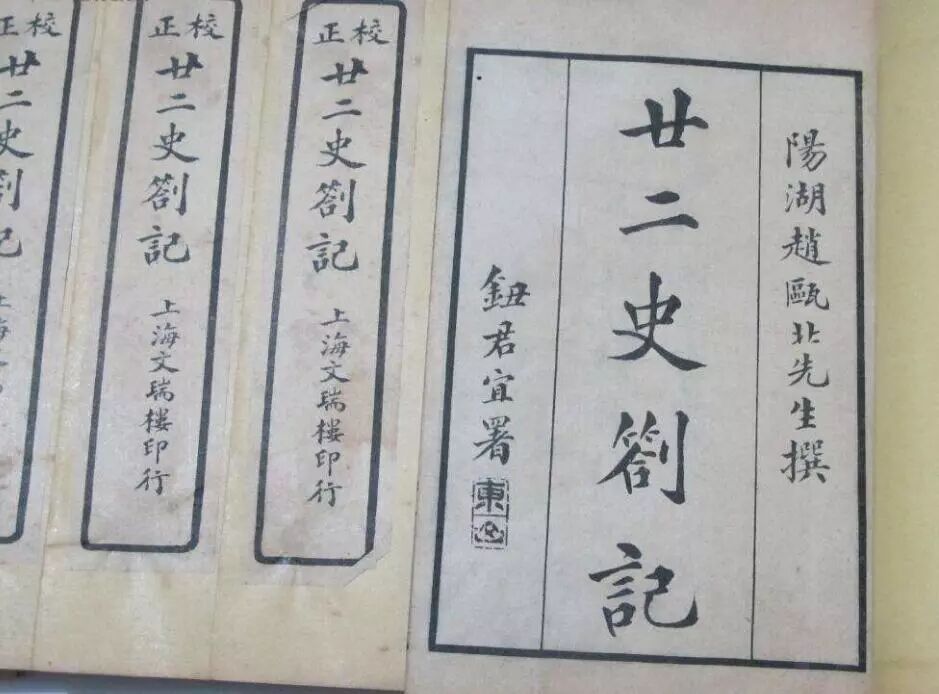 陽湖趙甌北先生撰
廿二史劄記
鈕君宜署
東
校正
廿二史劄記
上海文瑞樓印行
校正
廿二史劄記
上海文瑞樓印行
校正
廿二史劄記
上海文